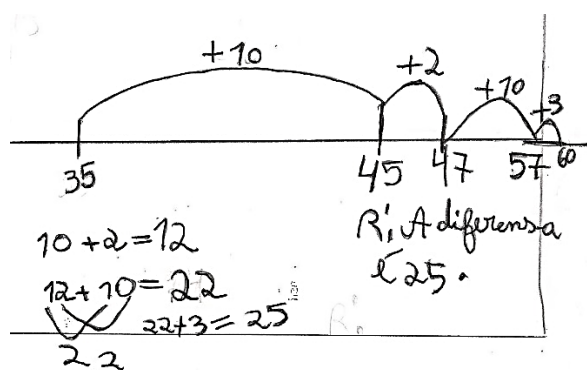 +10 +2 +10 +3
35 45 47 57 60
10 + 2 = 12
12 + 10 = 22
22
22+3 = 25
R: A diferensa
é 25.
R: